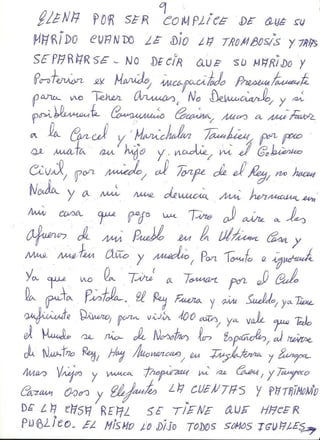 9
ELENA POR SER COMPLICE DE QUE SU
MARIDO CUANDO LE DIO LA TROMBOSIS Y TRAS
SEPARARSE - NO DECIR QUE SU MARIDO Y
Posterior ex Marido, incapacitado Presuntamente
para no Tener Armas, No Denunciarlo, y si
posiblemente Consumio Cocaina, mas a mi Favor
a la Carcel y Marichalar Tambien, por poco
se mata su hijo y nadie, ni el Gobierno
Civil, por miedo, al Torpe de el Rey, no hacen
Nada y a mi me denuncia mi hermana en
mi casa que pego un Tiro al aire a las
afueras de mi Pueblo en la Ultima Casa y
me meten Año y medio, Por Tonto e ignorante
Ya que no la Tiré a Tomar por el Culo
la puta Pistola. El Rey Fuera y sin Sueldo, ya Tiene
suficiente Dinero, para vivir 100 años, ya vale que Todo
el Mundo se ria de Nosotros los Españoles, al reirse
de Nuestro Rey, Hay Monarcas, en Inglaterra y Europa
mas Viejos y nunca tropiezan ni se Caen, y Tampoco
Cazan Osos y Elefantes LA CUENTAS Y PATRIMONIO
DE LA CASA REAL SE TIENE QUE HACER
PUBLICO. EL MISMO LO DIJO TODOS SOMOS IGUALES